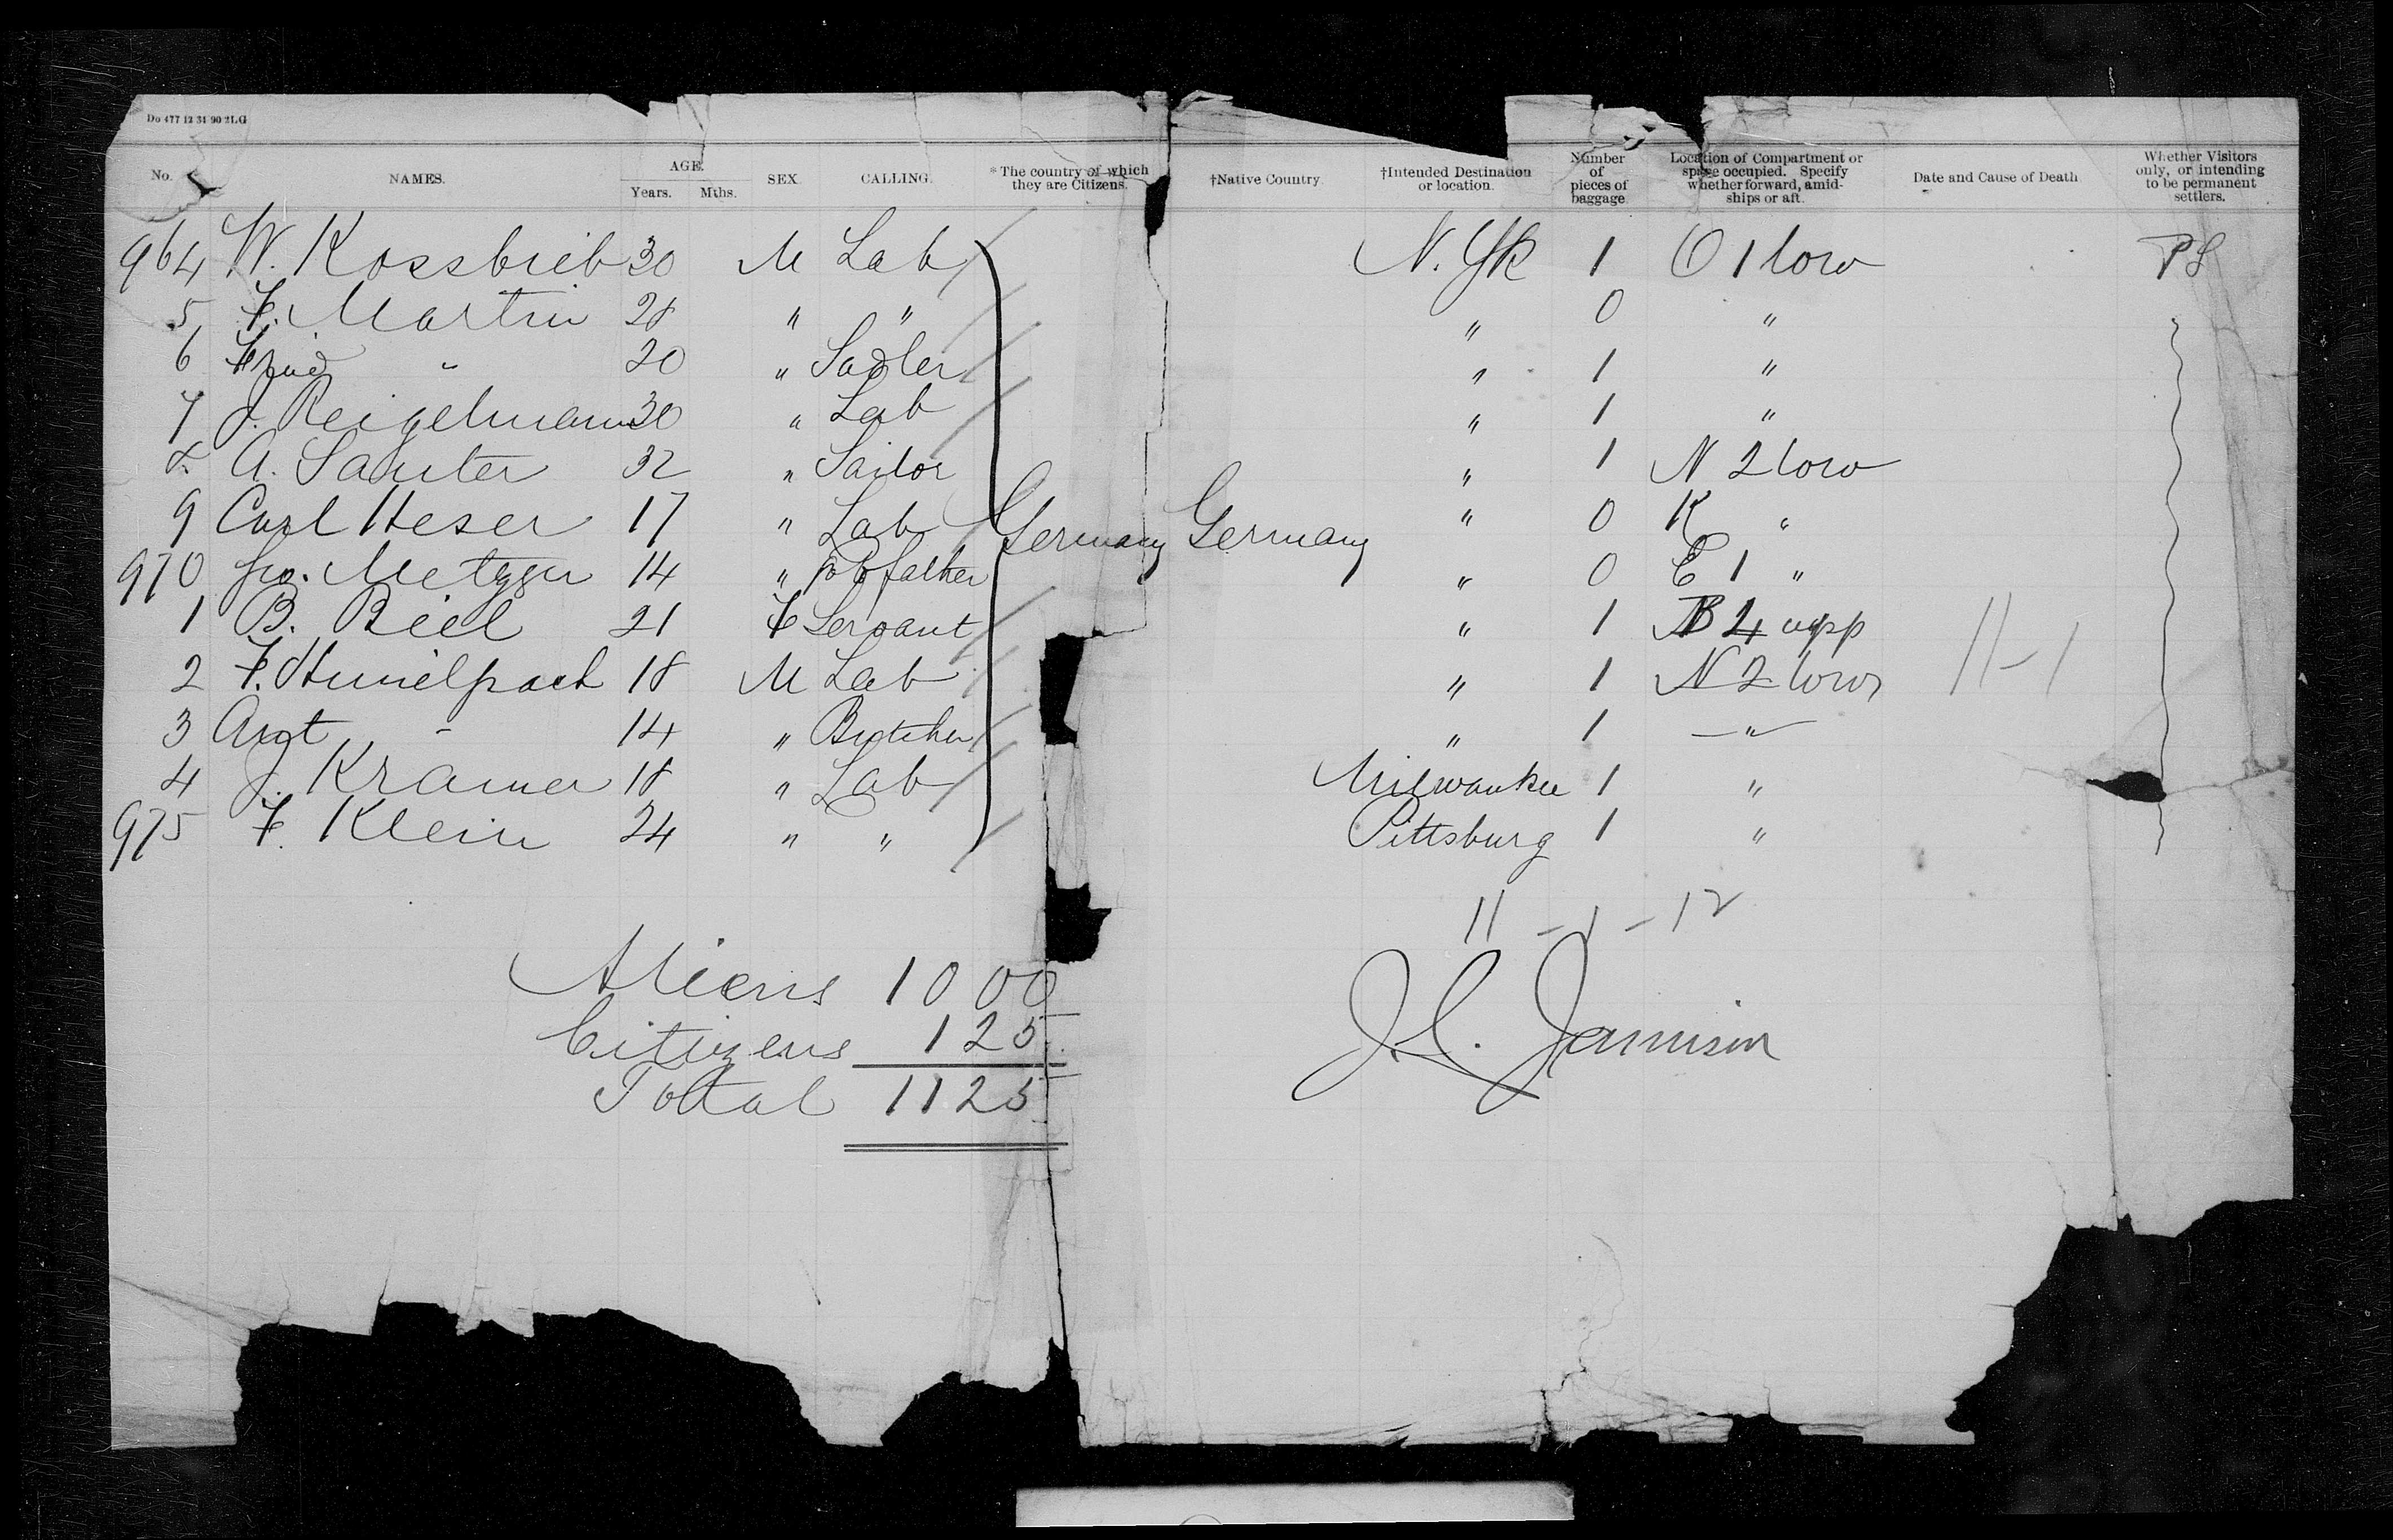 Do 477 12 31 90 2LG
No. NAMES. AGE. Years. Mths. SEX. CALLING. *The country of which they are Citizens. †Native Country. †Intended Destination or location. Number of pieces of baggage Location of Compartment or space occupied. Specify whether forward, amidships or aft. Date and Cause of Death. Whether Visitors only, or intending to be permanent settlers.
964 W. Kossbieb 30 M Lab N. Yk 1 O 1 low PS
5 F. Martin 28 " " " 0 "
6 " 20 " Sadler " 1 "
7 J. Reigelmann 30 " Lab " 1 "
8. A. Sauter 32 " Sailor " 1 N 2 low
9 Carl Heser 17 " Lab Germany Germany " 0 K "
970 Metzger 14 " father " 0 E 1 "
1 B. Biel 21 F Servant " 1 B 4 upp
2 F. 18 M Lab " 1 N 2 low 11-1
3 Augt " 14 " Butcher " 1 "
4 J. Kramer 18 " Lab Milwaukee 1 "
975 F. Klein 24 " " Pittsburg 1 "
11 - 1 - 12
Aliens 1000
Citizens 125
Total 1125
J. C. Jamison